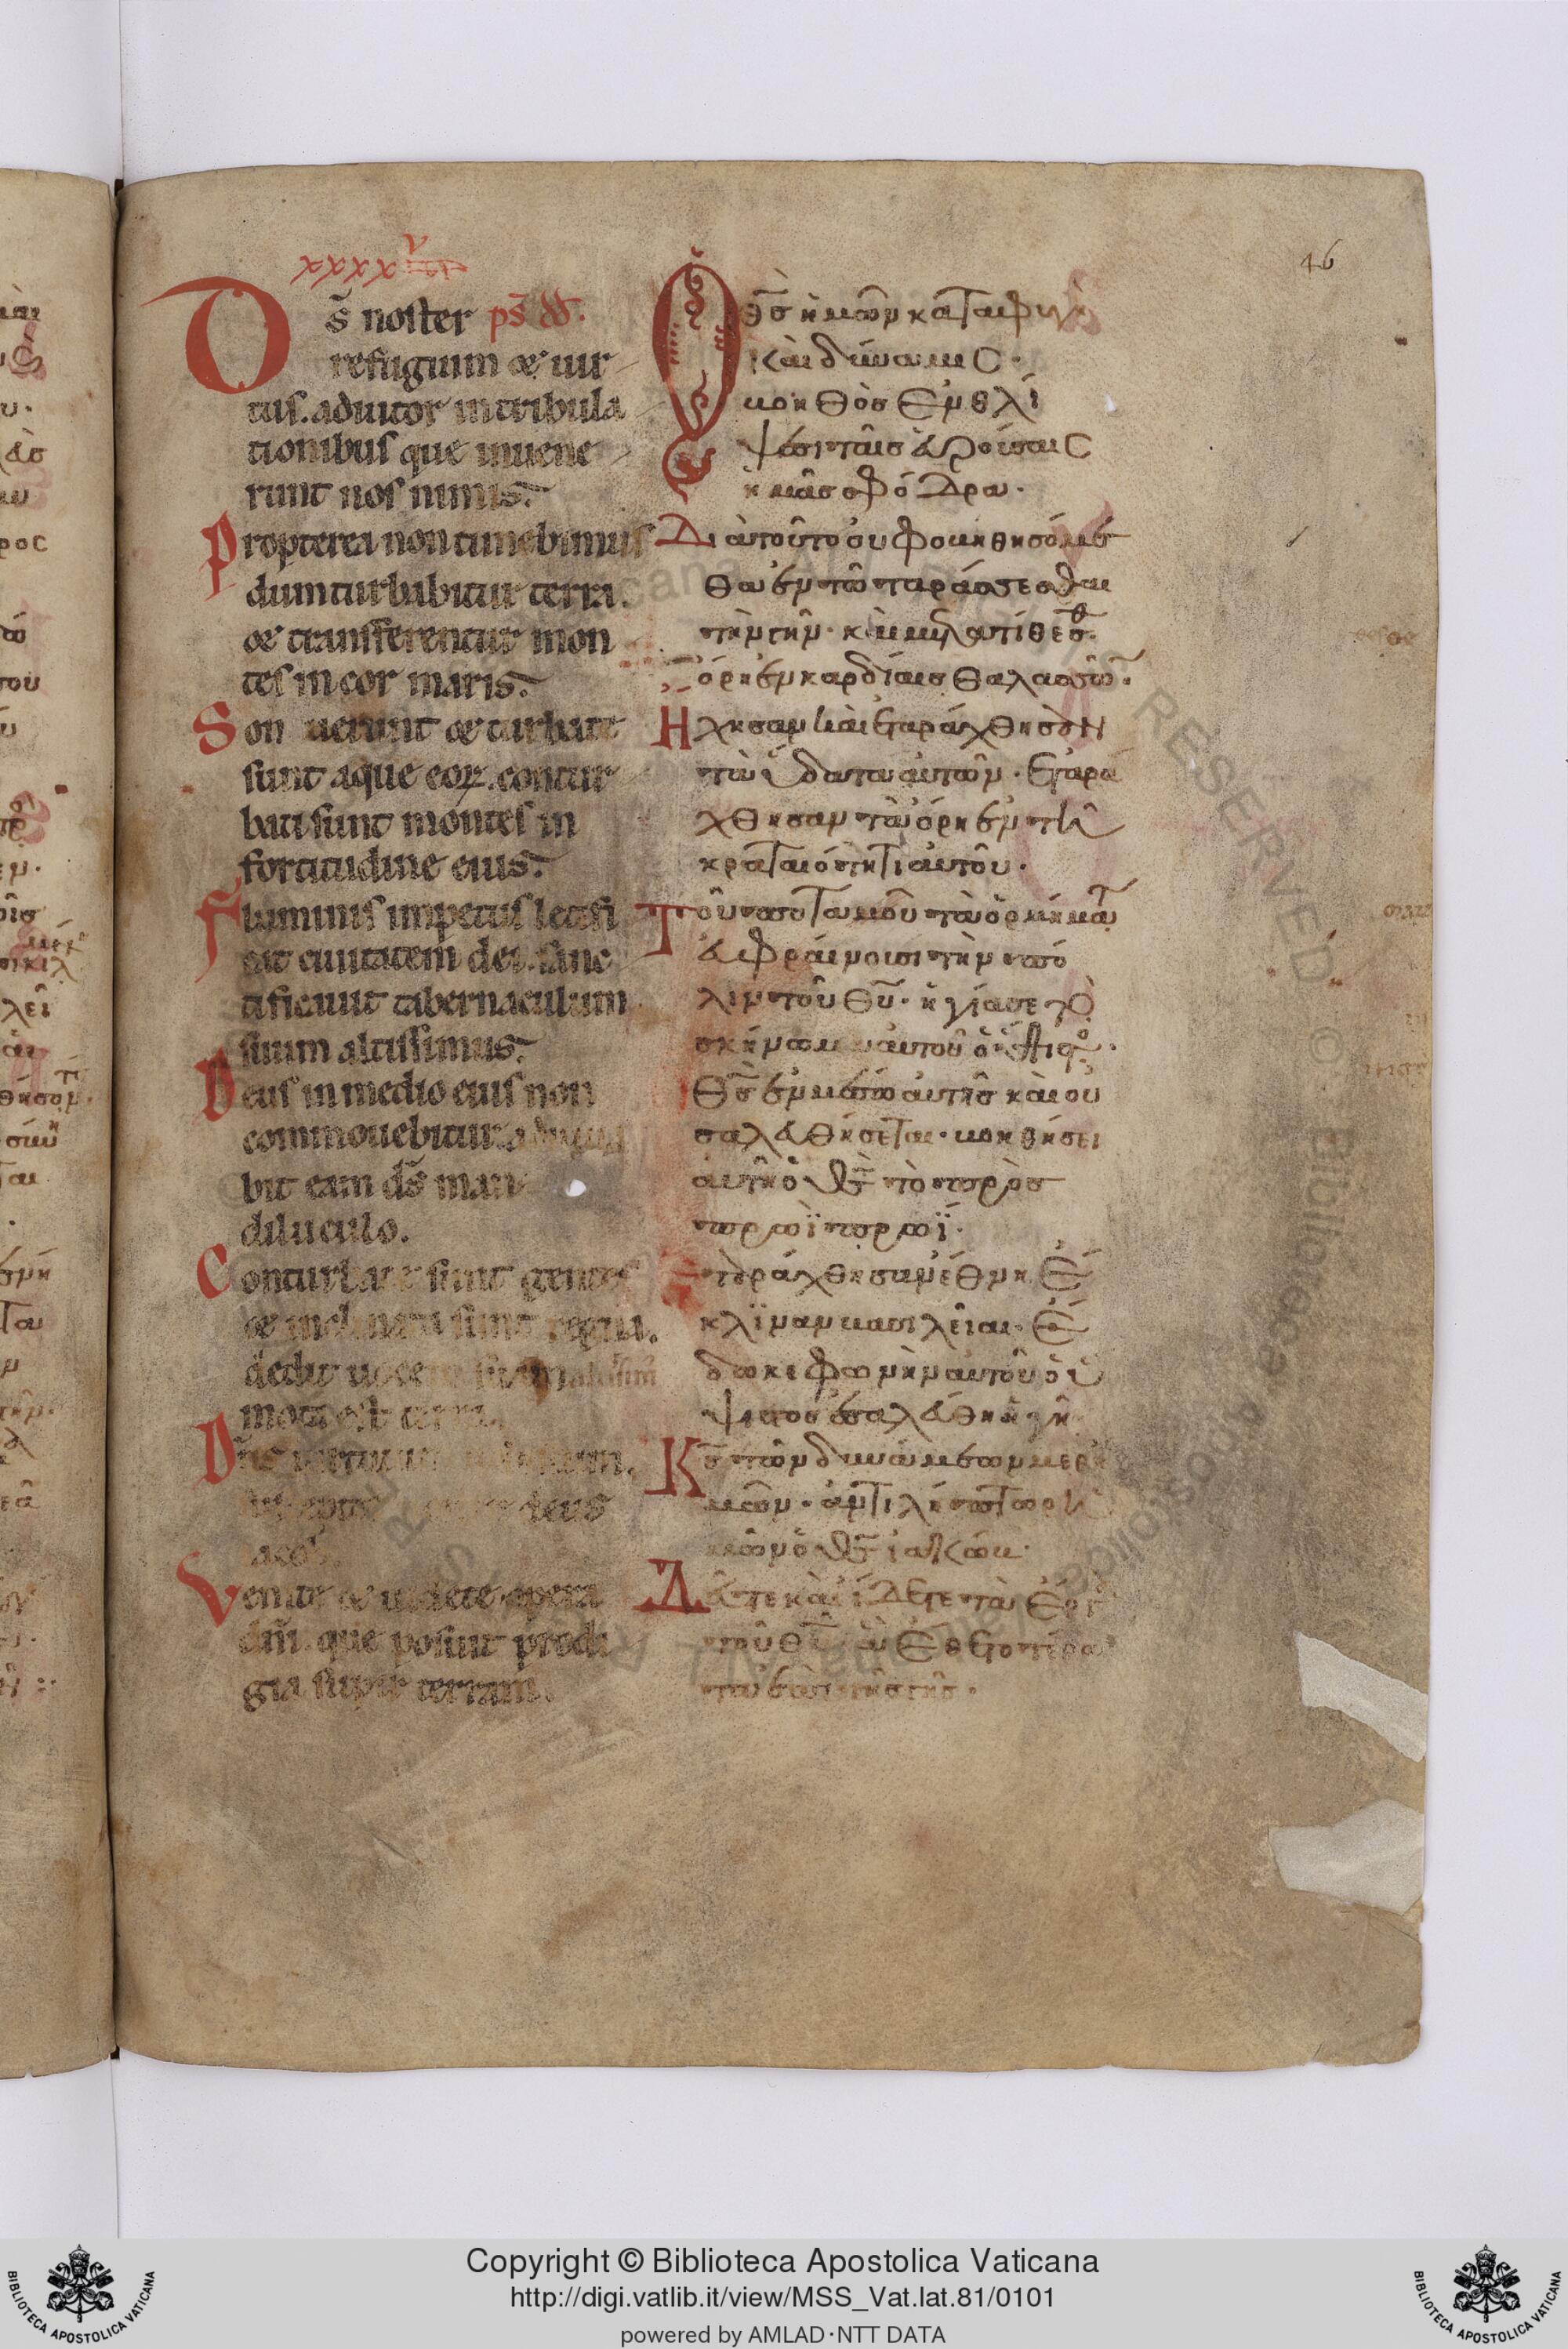 46
xxxxv
Ds̄ noster ps̄ dd.
refugium & uir
tus. adiutor in tribula
tionibus que inuene
runt nos nimis.
Propterea non timebimus
dum turbabitur terra.
& transferentur mon
tes in cor maris.
Sonuerunt & turbate
sunt aque eoꝝ. contur
bati sunt montes in
fortitudine eius.
Fluminis impetus letifi
cat ciuitatem dei. sanc
tificauit tabernaculum
suum altissimus.
Deus in medio eius non
commouebitur. adiuua
bit eam ds̄ mane
diluculo.
Conturbate sunt gentes
& inclinata sunt regna.
dedit uocem suam altissim
mota est terra.
Dn̄s uirtutum
deus
iacob.
Venite & uidete opera
dn̄i. que posuit prodi
gia super terram.
Ὁ θ̄σ ἡμῶν καταφυγὴ
καὶ δύναμις.
βοηθὸσ ἐν θλί
ψεσι ταῖσ εὑρούσαις
ἡμᾶσ σφόδρα.
Διὰ τοῦτο οὐ φοβηθησόμε
θα ἐν τῶ ταράσσεσθαι
τὴν γῆν. κ̀ μετατίθεσθ
ὄρη ἐν καρδίαισ θαλασσῶ.
Ἤχησαν καὶ ἐταράχθησὰν
τὰ ὕδατα αὐτῶν. ἐταρά
χθησαν τὰ ὄρη ἐν τῆ
κραταιότητι αὐτοῦ.
Τοῦ ποταμοῦ τὰ ὁρμήματ
εὐφραίνουσι τὴν πό
λιν τοῦ θῡ. ἡγίασε τὸ
σκήνωμα αὐτοῦ ὁ ὕψιστο.
Θ̄σ ἐν μέσω αὐτῆσ καὶ οὐ
σαλευθήσεται. βοηθήσει
αὐτῆ ὁ θ̄σ τὸ πρὸσ
πρωῒ πρωΐ.
Ἐταράχθησαν ἔθνη ἔ
κλιναν βασιλεῖαι. ἔ
δωκε φωνὴν αὐτοῦ ὁ ὕ
ψιστοσ ἐσαλεύθη ἡ γῆ
Κ̄σ τῶν δυνάμεων μεθ ἡ
μῶν. ἀντιλήπτωρ ἡ
μῶν ὁ θ̄σ ἰακώβ.
Δεῦτε καὶ ἴδετε τὰ ἔργα
τοῦ θῡ ἃ ἔθετο τέρα
τα ἐπὶ τῆσ γῆσ.
Copyright © Biblioteca Apostolica Vaticana
http://digi.vatlib.it/view/MSS_Vat.lat.81/0101
powered by AMLAD·NTT DATA
BIBLIOTECA APOSTOLICA VATICANA
BIBLIOTECA APOSTOLICA VATICANA